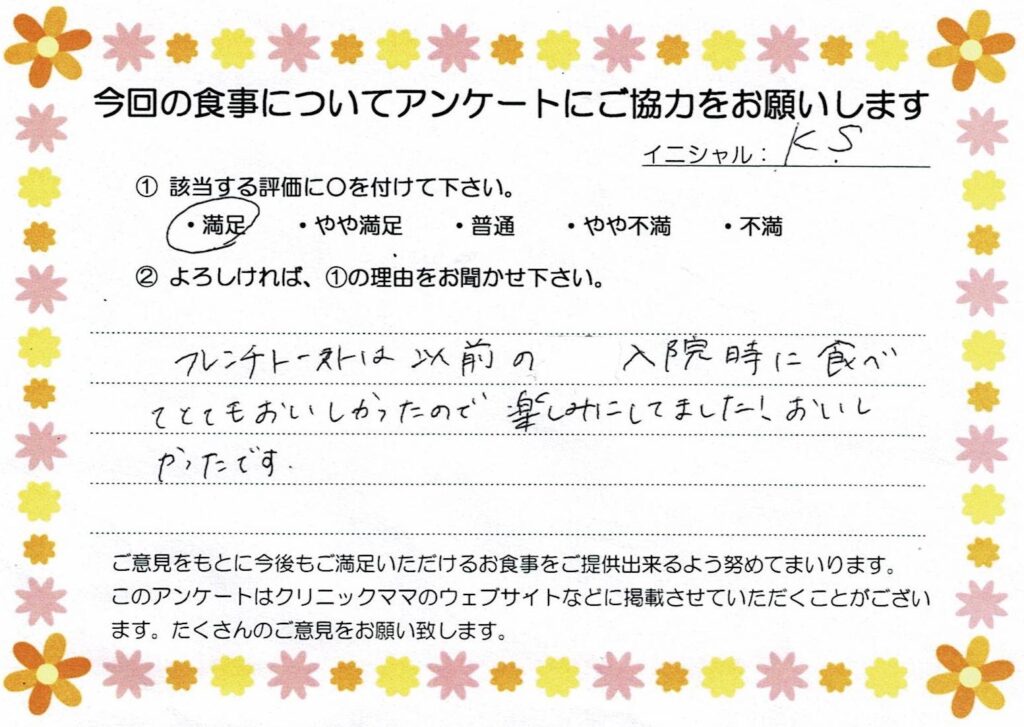 今回の食事についてアンケートにご協力をお願いします
イニシャル： K.S
① 該当する評価に〇を付けて下さい。
・満足 ・やや満足 ・普通 ・やや不満 ・不満
② よろしければ、①の理由をお聞かせ下さい。
フレンチトーストは以前の 入院時に食べ
てとてもおいしかったので楽しみにしてました！おいし
かったです.
ご意見をもとに今後もご満足いただけるお食事をご提供出来るよう努めてまいります。
このアンケートはクリニックママのウェブサイトなどに掲載させていただくことがござい
ます。たくさんのご意見をお願い致します。